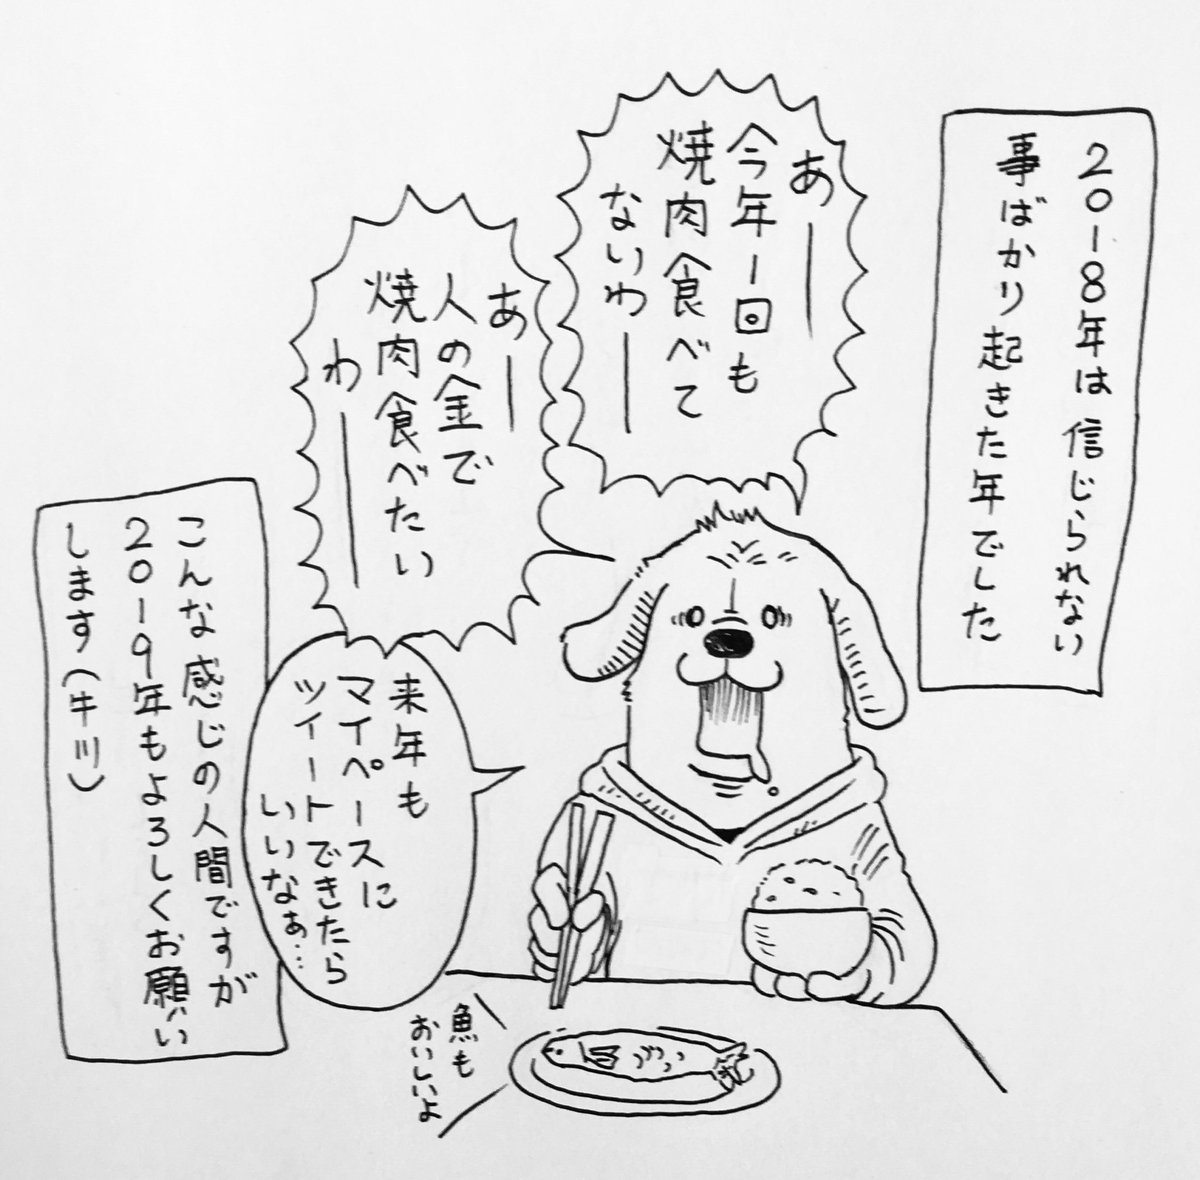 2018年は信じられない
事ばかり起きた年でした
あー
今年1回も
焼肉食べて
ないわー
あー
人の金で
焼肉食べたい
わー
来年も
マイペースに
ツイートできたら
いいなぁ…
こんな感じの人間ですが
2019年もよろしくお願い
します(キリッ)
魚も
おいしいよ